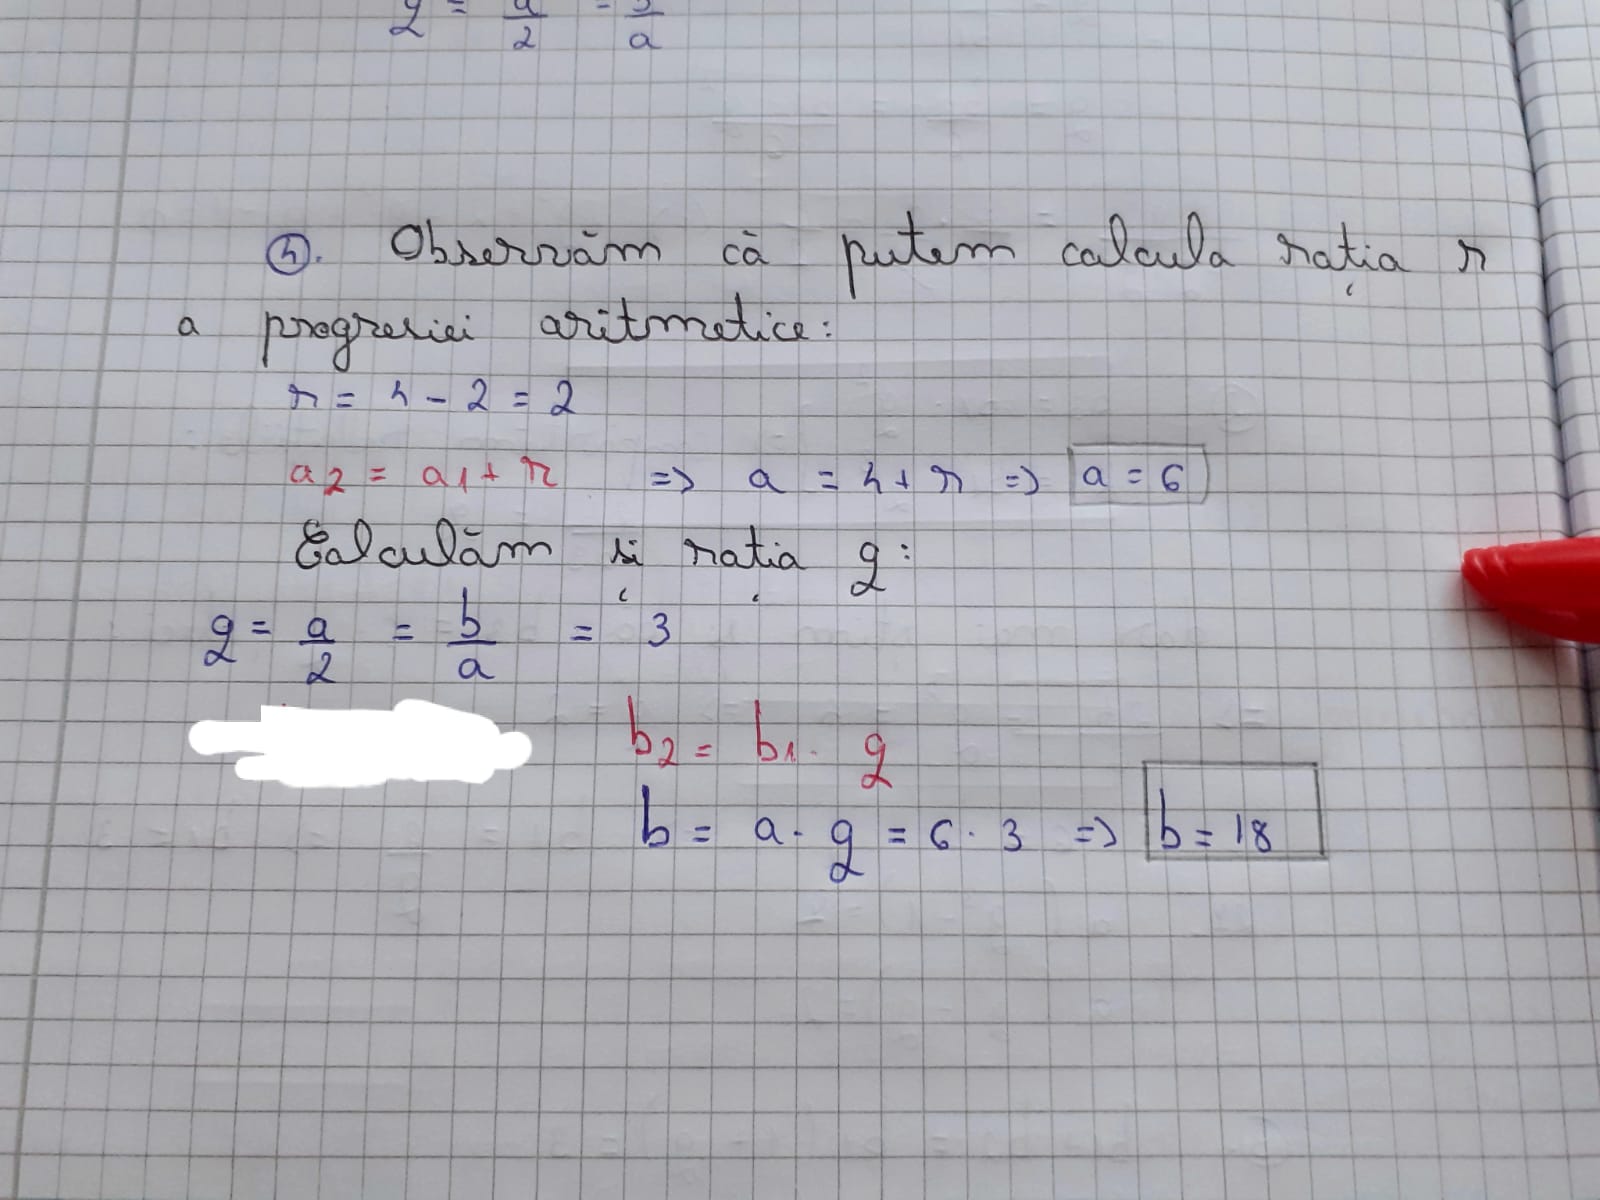 q = a/2 = b/a
④. Observăm că putem calcula rația r
a progresiei aritmetice:
r = 4 - 2 = 2
a2 = a1 + r => a = 4 + r => a = 6
Calculăm și rația q:
q = a/2 = b/a = 3
b2 = b1 · q
b = a · q = 6 · 3 => b = 18